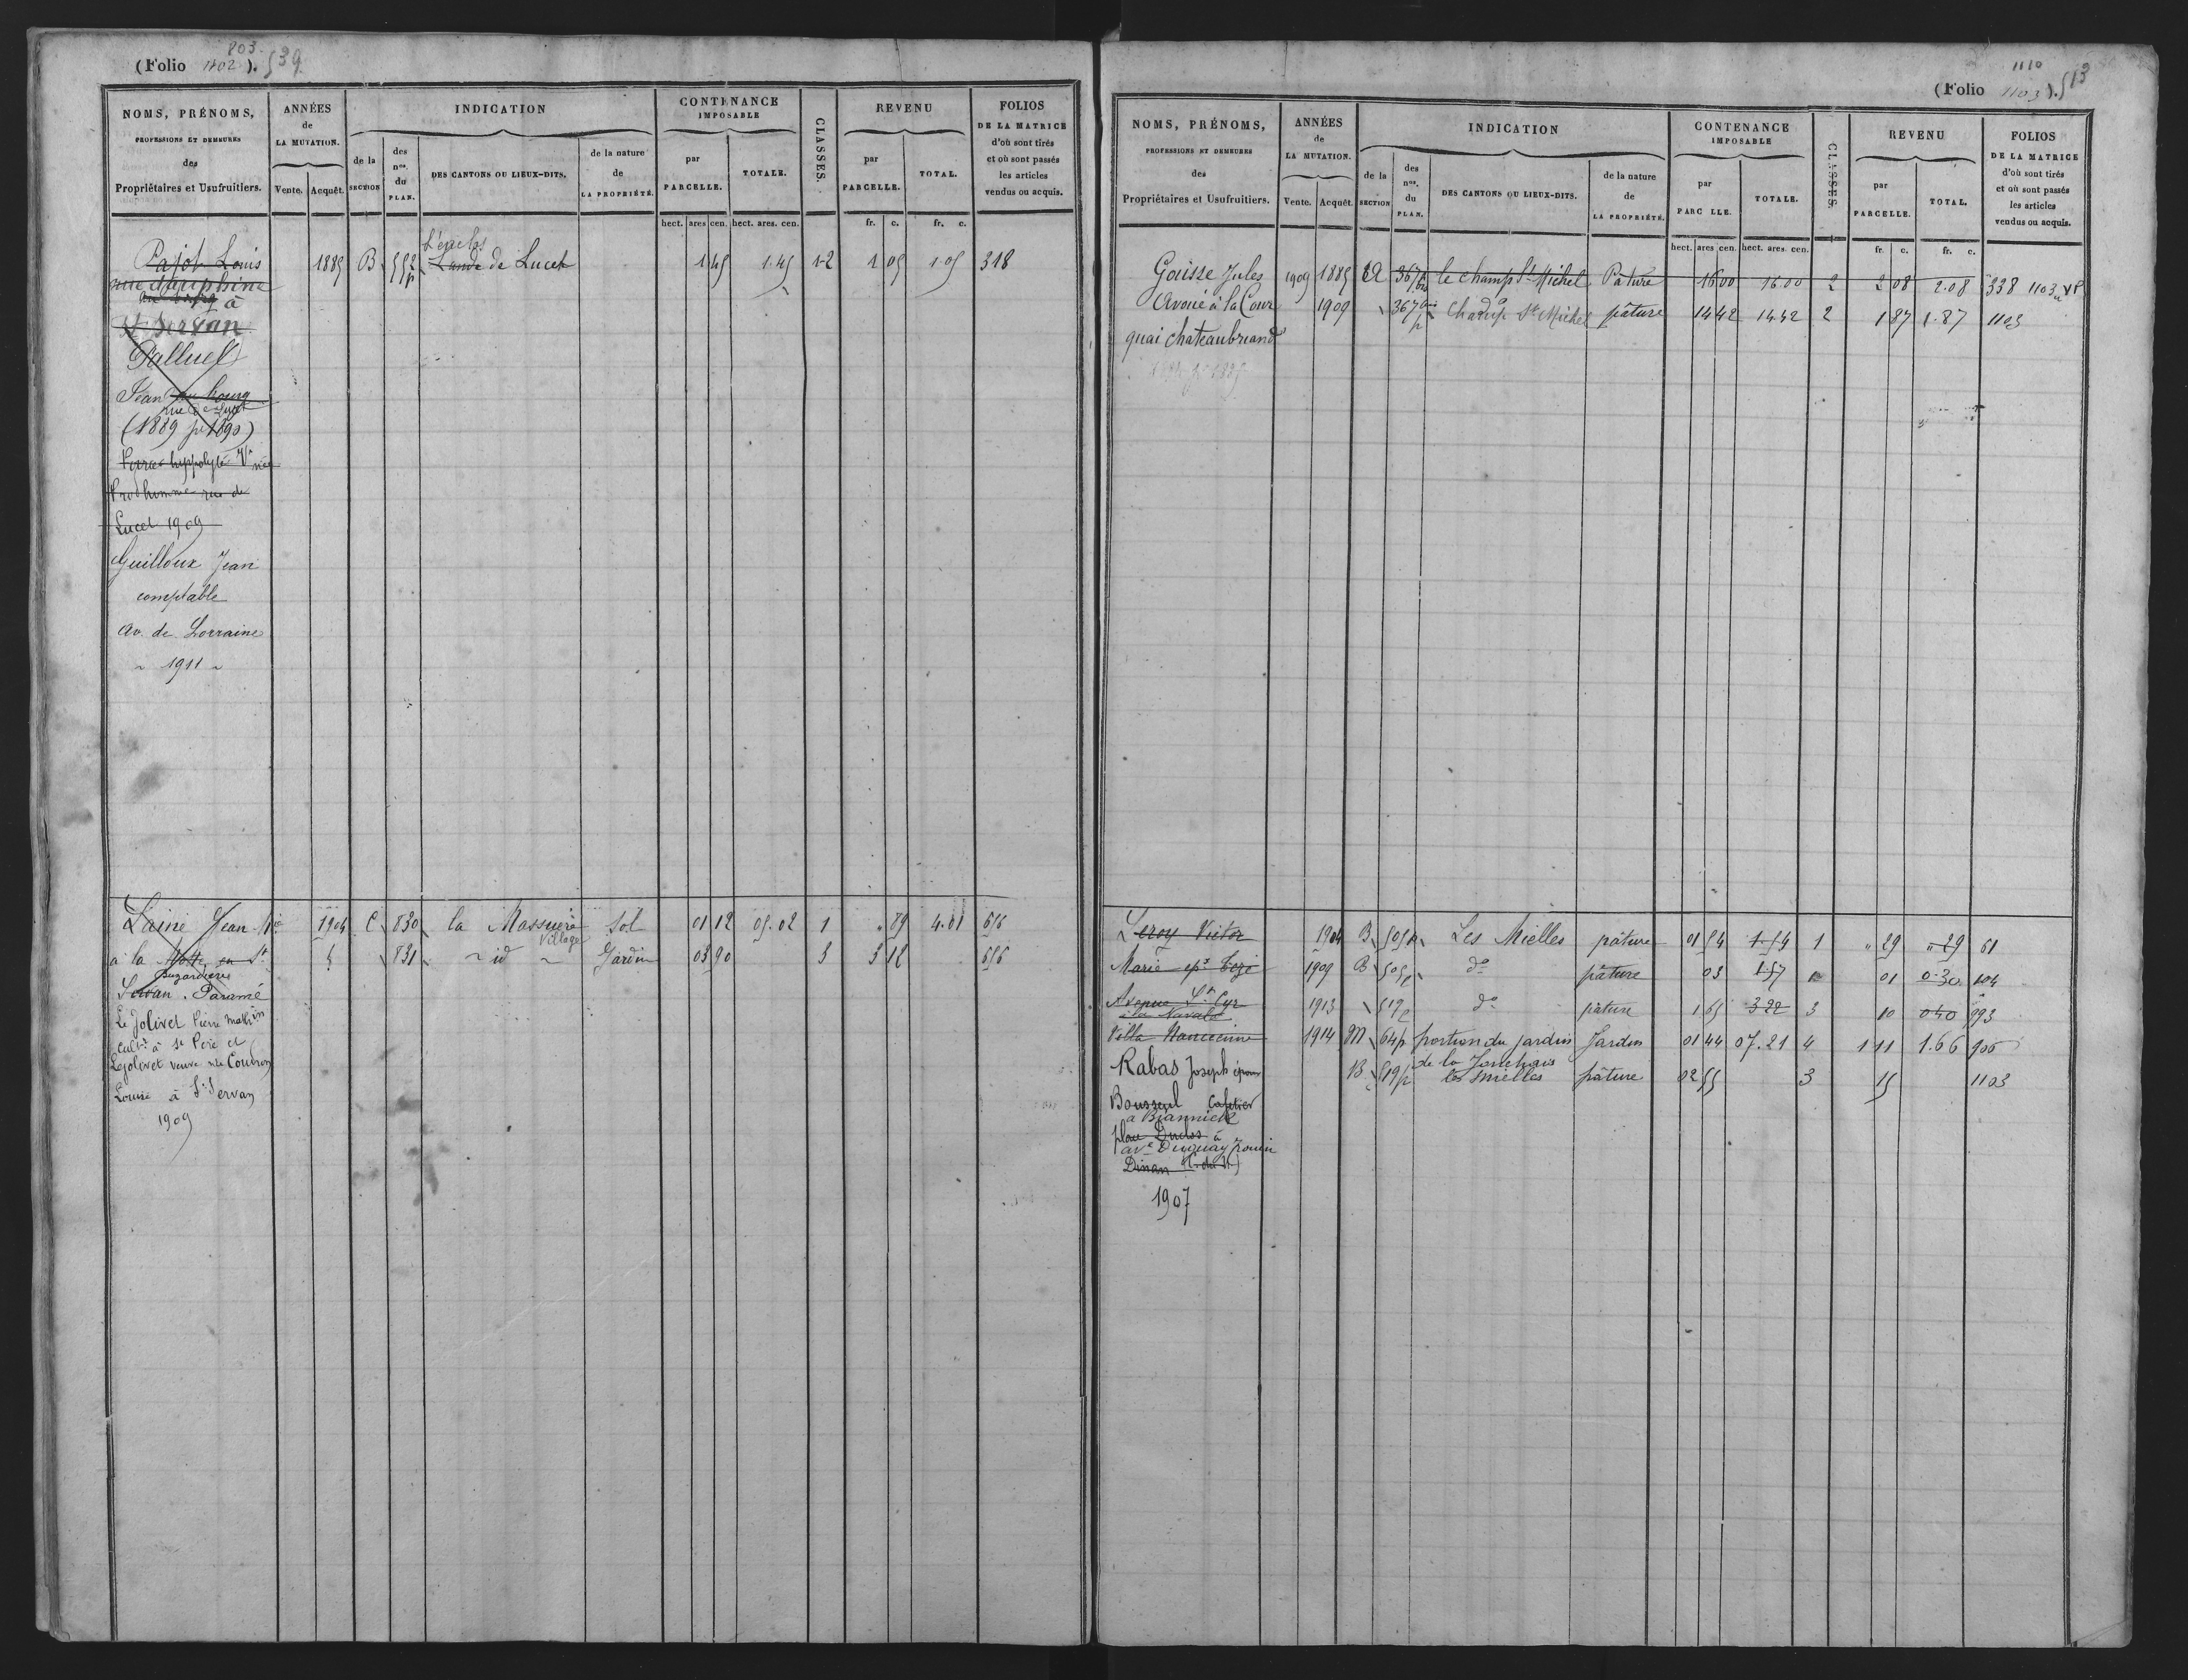 803
(Folio 1102). 539
NOMS, PRÉNOMS,
PROFESSIONS ET DEMEURES
des
Propriétaires et Usufruitiers.
ANNÉES
de
LA MUTATION.
Vente. Acquêt.
INDICATION
de la
SECTION
des
nos.
du
PLAN.
DES CANTONS OU LIEUX-DITS.
de la nature
de
LA PROPRIÉTÉ.
CONTENANCE
IMPOSABLE
par
PARCELLE.
TOTALE.
hect. ares cen. hect. ares. cen.
CLASSES.
REVENU
par
PARCELLE.
TOTAL.
fr. c. fr. c.
FOLIOS
DE LA MATRICE
d'où sont tirés
et où sont passés
les articles
vendus ou acquis.
L'enclos
Pajot Louis 1885 B 552 p Lande de Lucet 1 45 1.45 1-2 1 05 1.05 318
rue dauphine
au bourg à
St Servan
Palluel
Jean au bourg
rue de Lucet
(1889 pr 1890)
hippolyte Ve née
Prodhomme rue de
Lucet 1909
Guilloux Jean
comptable
Av. de Lorraine
~ 1911 ~
Lainé Jean 1904 C 830 la Massuère Sol 01 12 05.02 1 " 89 4.01 656
Village
à la Motte en St 831 ~ id ~ Jardin 03 90 3 3 12 656
Buzardière
Servan. Paramé
Le Jolivet Pierre Mathin
cultr à St Père et
Lejolivet veuve née Coubron
Louise à St Servan
1909
1110
(Folio 1103). 513
NOMS, PRÉNOMS,
PROFESSIONS ET DEMEURES
des
Propriétaires et Usufruitiers.
ANNÉES
de
LA MUTATION.
Vente. Acquêt.
INDICATION
de la
SECTION
des
nos.
du
PLAN.
DES CANTONS OU LIEUX-DITS.
de la nature
de
LA PROPRIÉTÉ.
CONTENANCE
IMPOSABLE
par
PARC LLE.
TOTALE.
hect. ares cen. hect. ares. cen.
CLASSES.
REVENU
par
PARCELLE.
TOTAL.
fr. c. fr. c.
FOLIOS
DE LA MATRICE
d'où sont tirés
et où sont passés
les articles
vendus ou acquis.
Gaisse Jules 1909 1885 A 367 bis le champ St Michel Pâture 16 00 16.00 2 2 08 2.08 338 1103
Avoué à la Cour 1909 367 bis p Champ St Michel pâture 14 42 14.42 2 1 87 1.87 1103
quai chateaubriand
Leroy Victor 1904 B 505 p Les Mielles pâture 01 54 1.54 1 " 29 " 29 61
Marie épx 1909 B 505 p do pâture 03 1.57 01 0.30 104
Avenue St Cyr 1913 519 p do pâture 1 65 3 22 3 10 0 40 993
à la Navale
Villa 1914 M 64 p portion du jardin Jardin 01 44 07.21 4 1 11 1.66 906
de la Jonchais
Rabas Joseph époux B 519 p les mielles pâture 02 55 3 15 1103
Bousseul Cafetier
a Biannick
place Duclos à
ave Duguay Trouin
Dinan (C. du N.)
1907